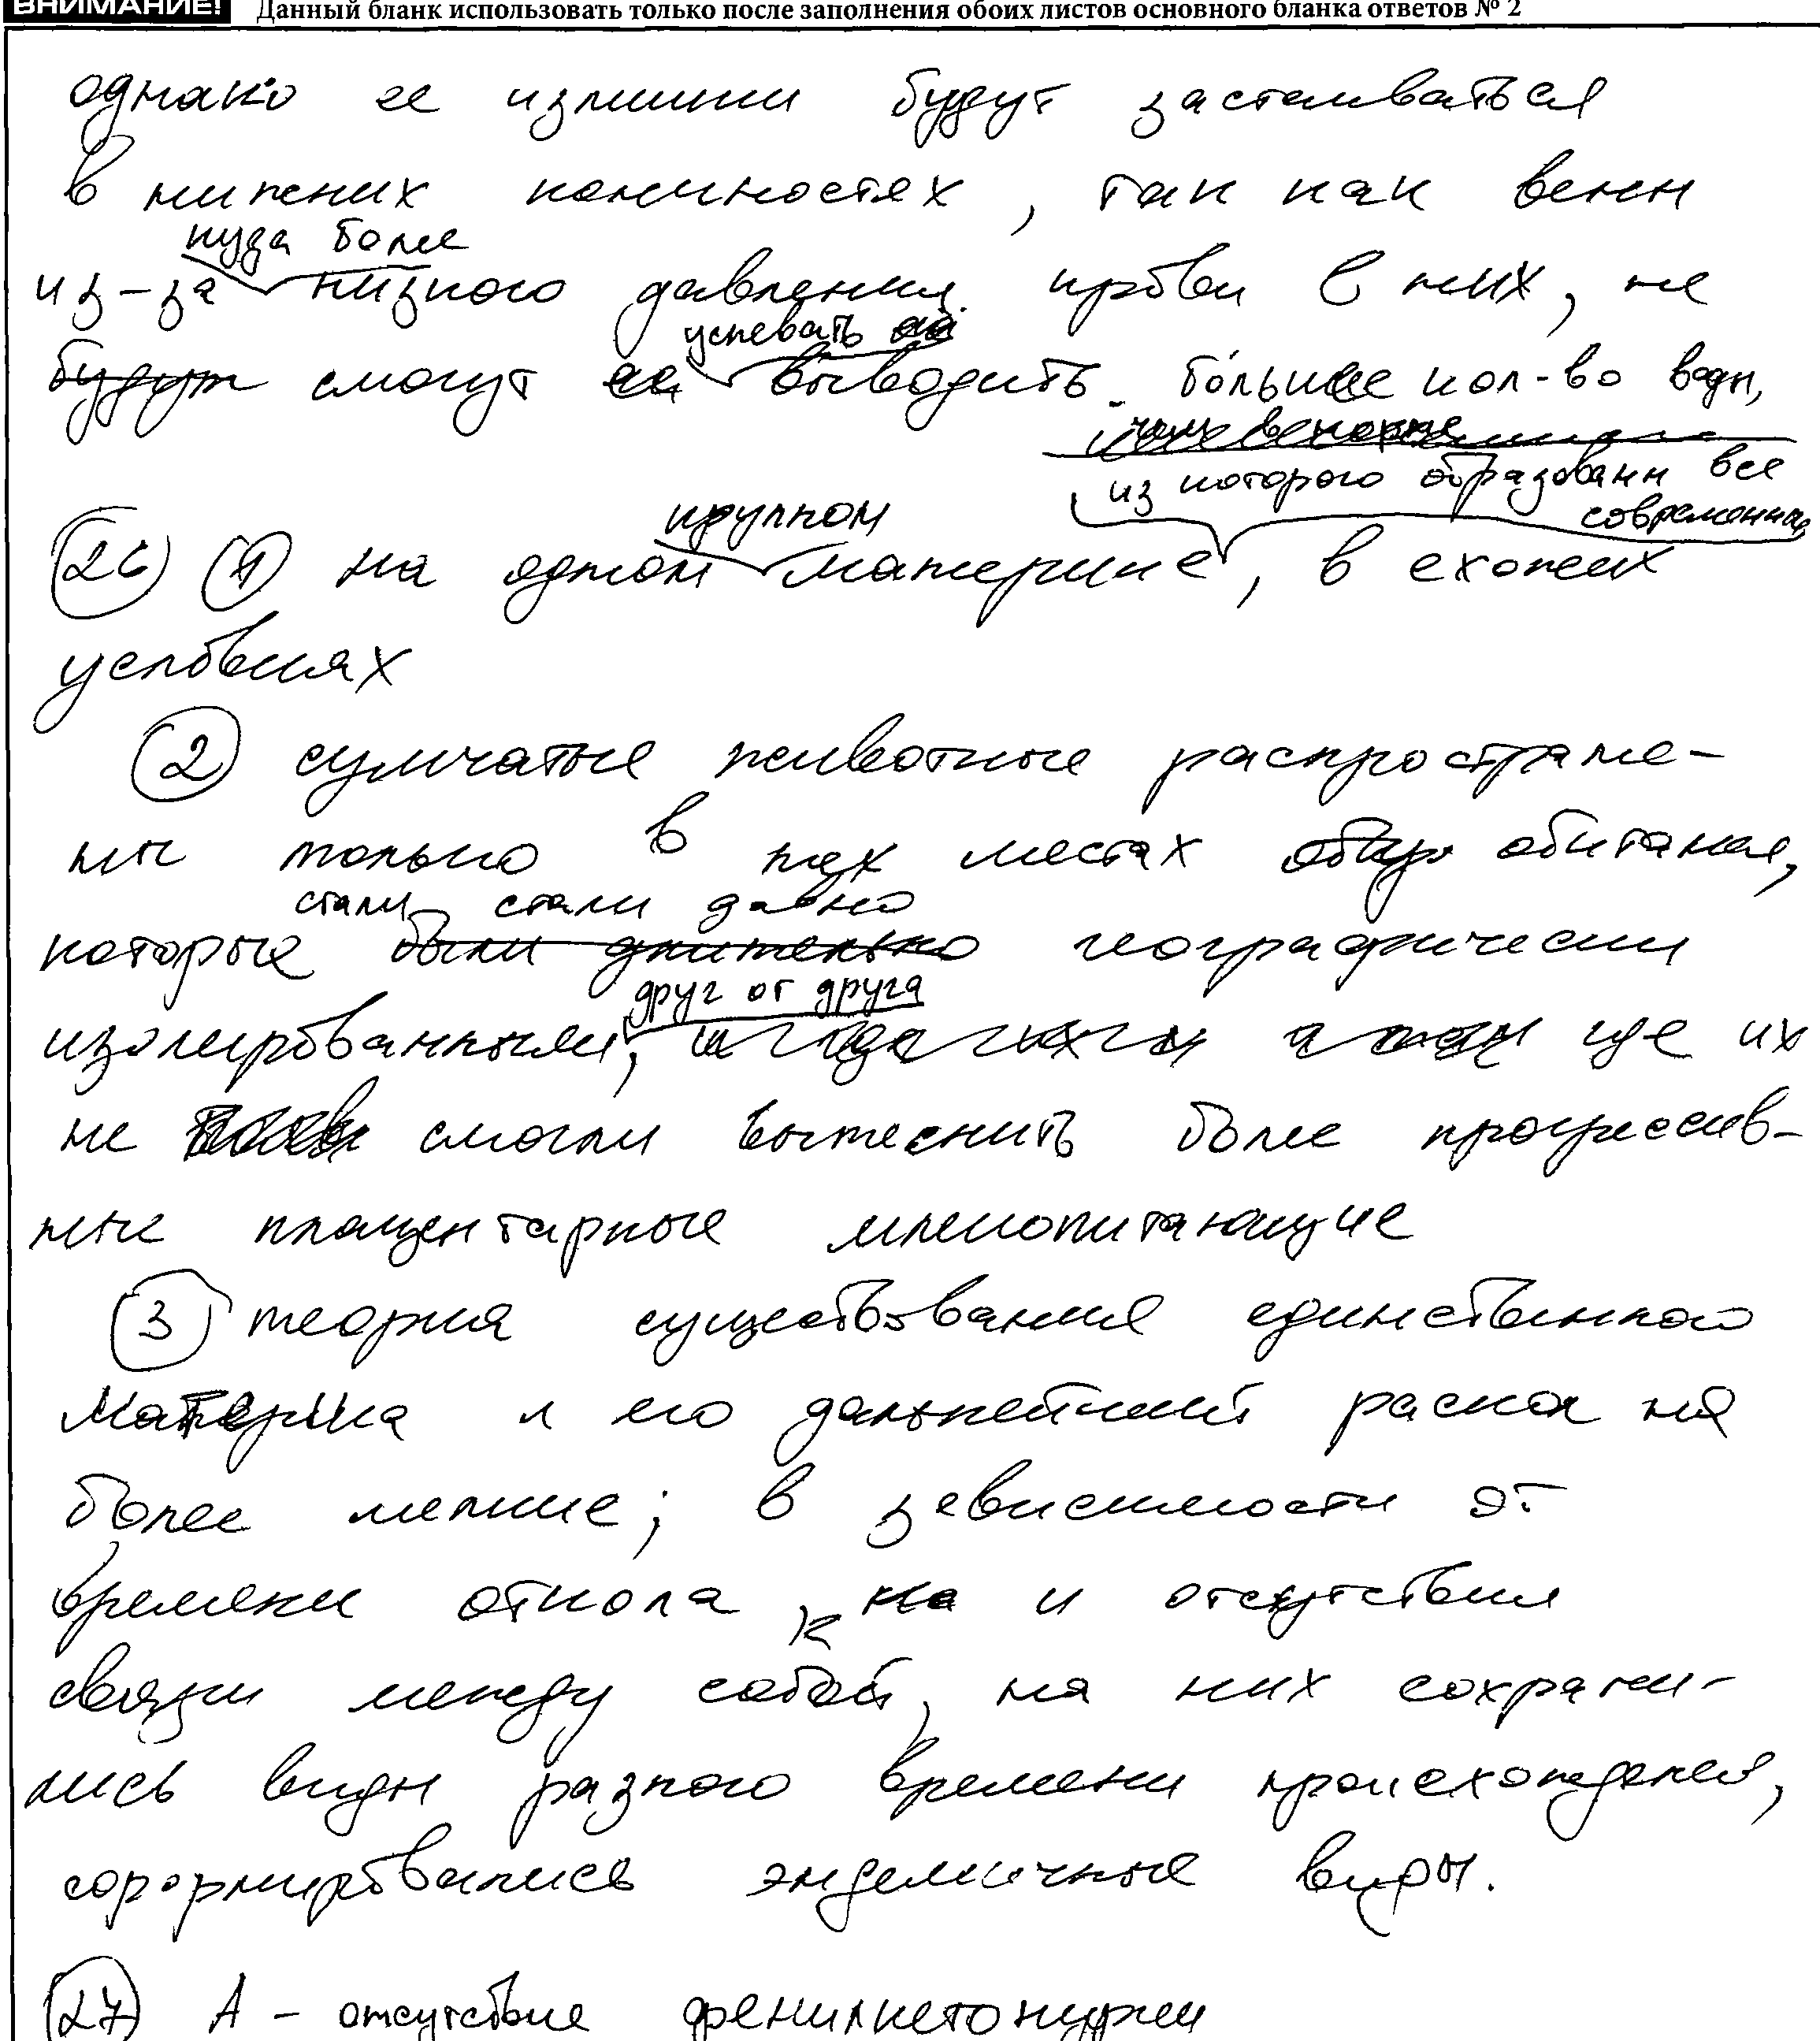 ВНИМАНИЕ! Данный бланк использовать только после заполнения обоих листов основного бланка ответов № 2
однако ее излишки будут застаиваться
в нижних конечностях, так как вены
куда более
из-за низкого давления крови в них, не
успевать
будут смогут выводить большее кол-во воды,
из которого образованы все
современные
крупном
26 1 на одном материке, в схожих
условиях
2 сумчатые животные распростране-
ны только в тех местах обитания,
стали стали давно
которые были длительно географически
друг от друга
изолированными, где их
не смогли вытеснить более прогрессив-
ные плацентарные млекопитающие
3 теория существования единственного
материка и его дальнейший раскол на
более мелкие; в зависимости от
времени откола, на и отсутствия
связи между собой, на них сохрани-
лись виды разного времени происхождения,
сформировались эндемичные виды.
27 А - отсутствие фенилкетонурии